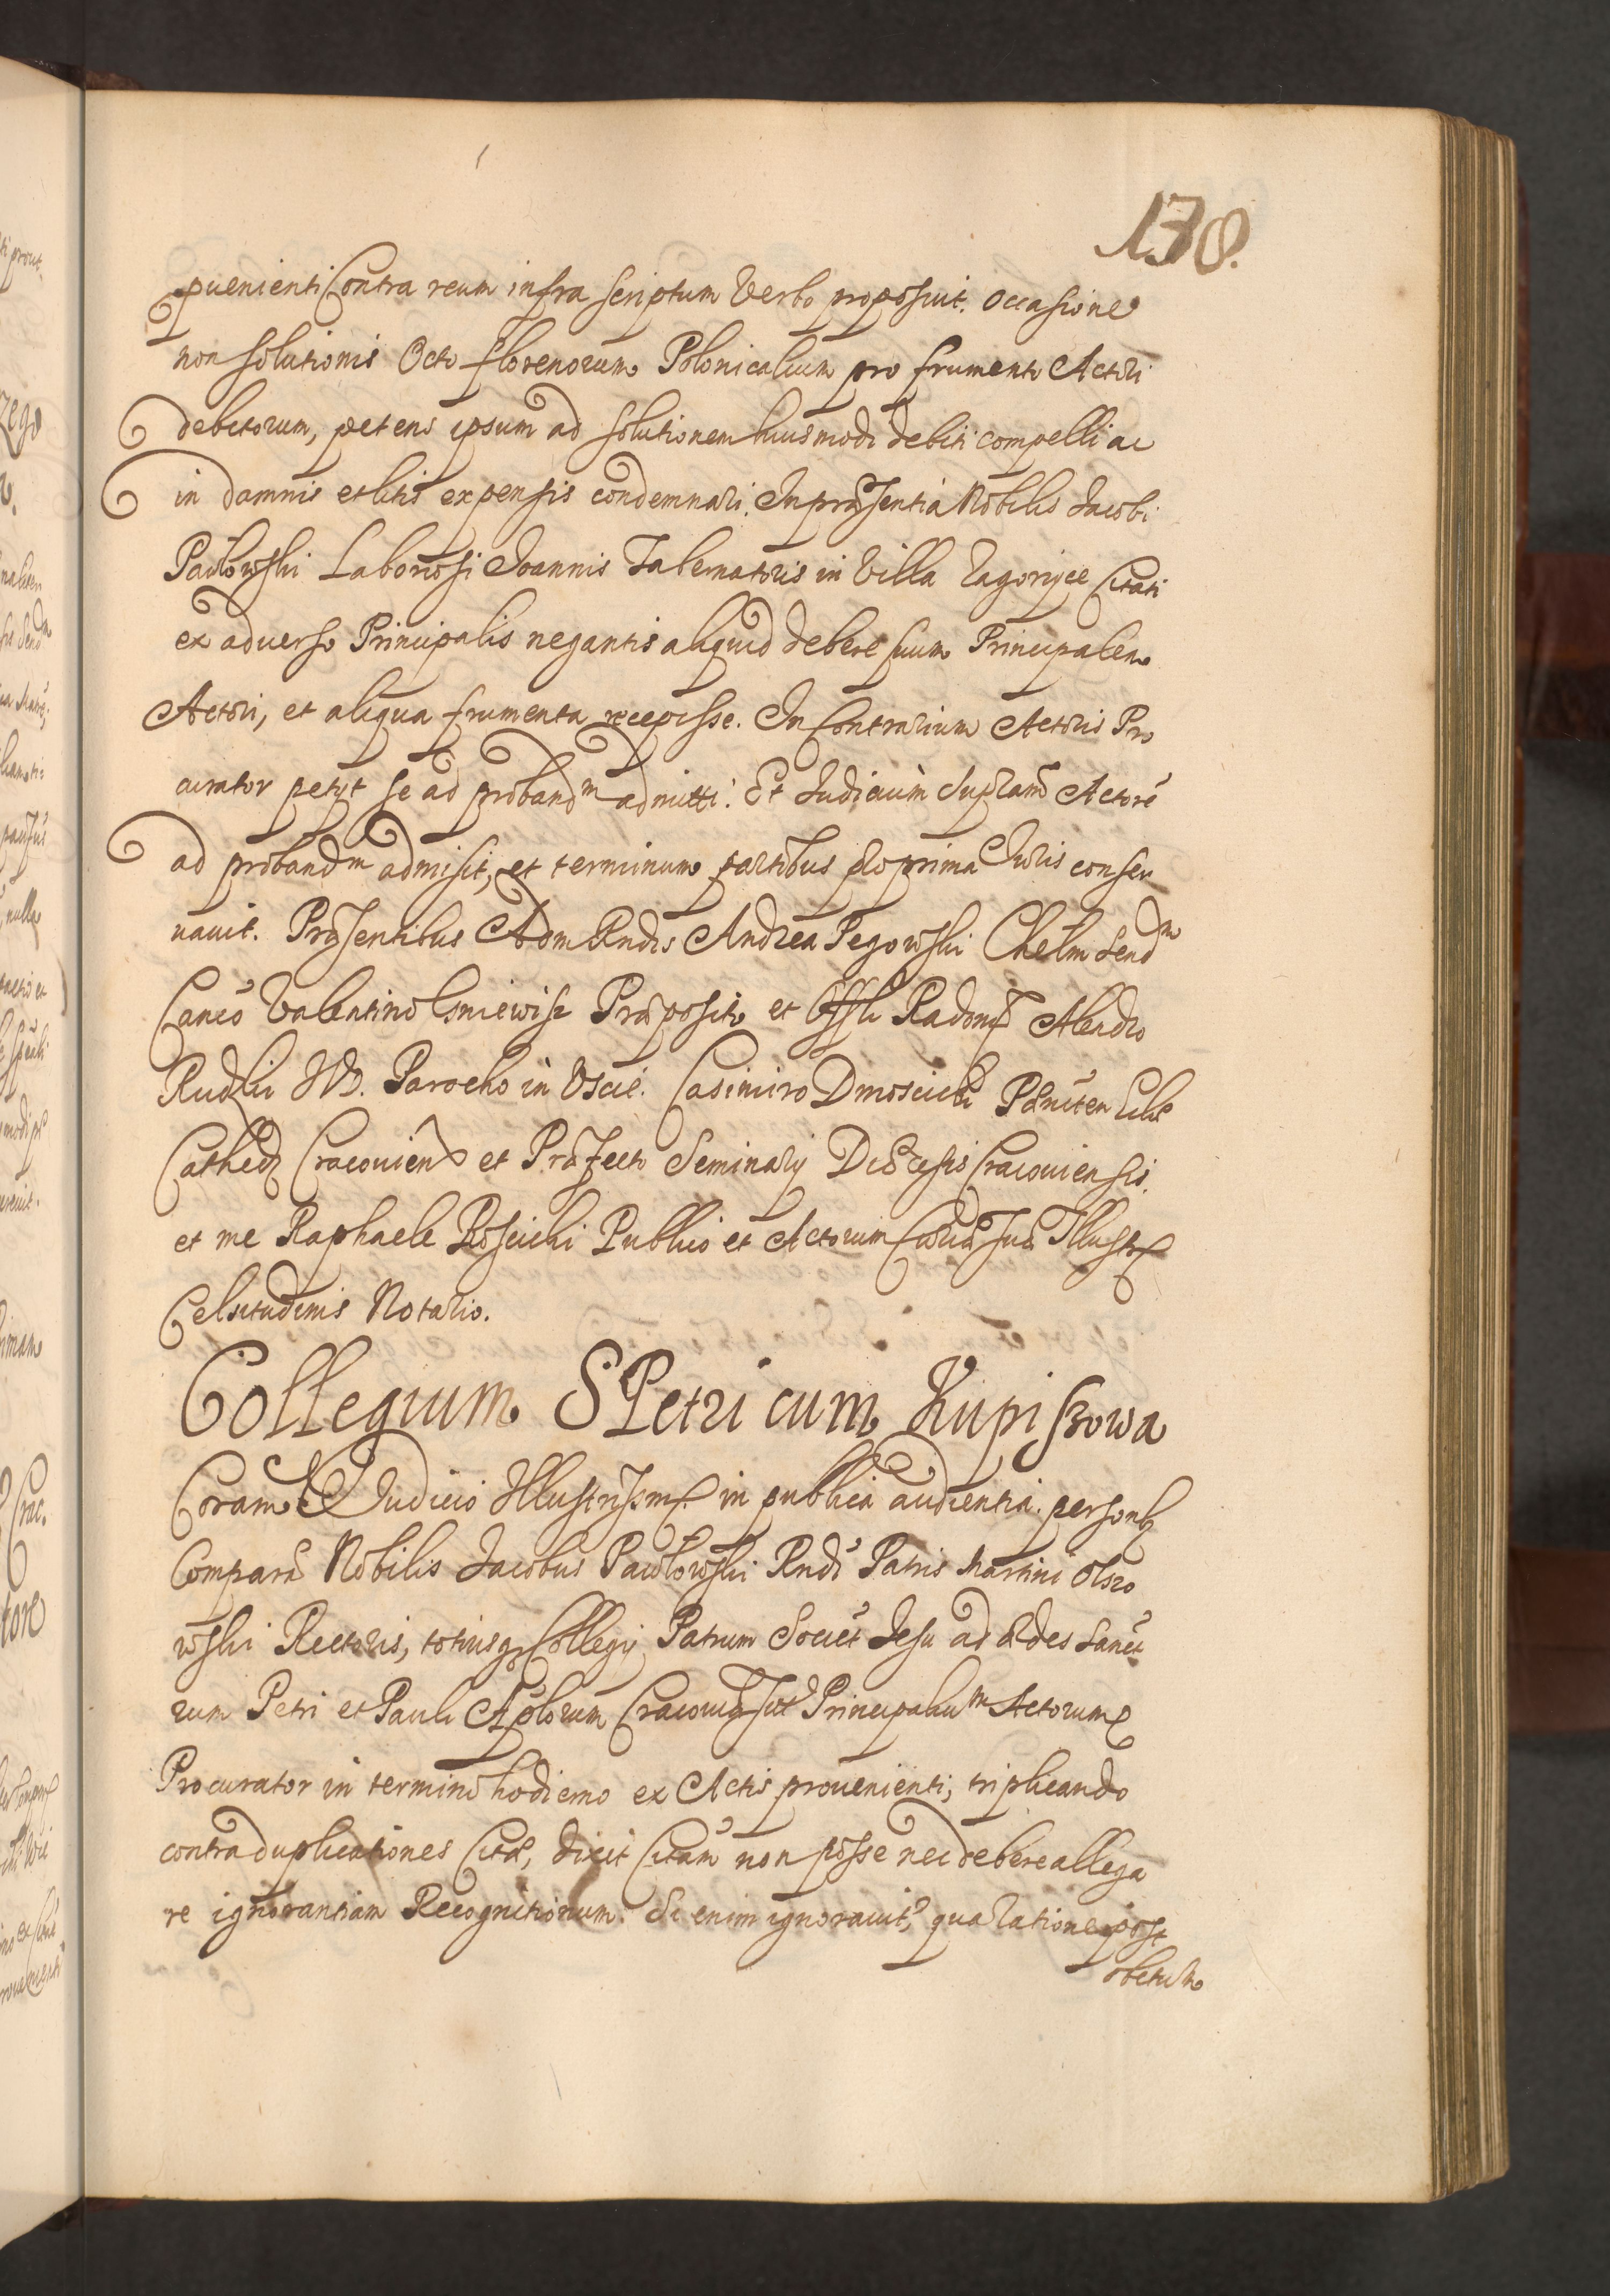 138.
puenienti Contra reum infra scriptum Verbo proposuit. occasione
non solutionis Octo florenorum Polonicalium pro frumento Actori
debitorum, petens ipsum ad solutionem huiusmodi debiti compelli ac
in damnis et litis expensis condemnari. In præsentia Nobilis Jacobi
Pawłowski Laboriosi Joannis Tabernatoris in Villa Zagorzyce Citati
ex adverso Principalis negantis aliquid debere suum Principalem
Actori, et aliqua frumenta recepisse. In Contrarium Actoris Pro
curator petyt se ad proband^m admitti. Et Judicium Actore
ad proband^m admisit, et terminum partibus pro prima Juris conser
vauit. Præsentibus Adm Rndis Andrea Pegowski Chelm Send^m
Canco Valentino Præposito et Offli Radom Alexdro
Rudzki Parocho in Uscie. Casimiro Dmoscicki Pæniten Eccl
Cathed Cracovien et Præfecto Seminarij Diæcesis Cracouiensis.
et me Raphaele Roscicki Publico et Actorum Curiæ Suæ Illustr
Celsitudinis Notario.
Collegium S Petri cum Kupiszowa
Coram Judicio Illustrissmi in publica audientia. personlr
Comparen Nobilis Jacobus Pawłowski Rndi Patris Martini Olszo
wski Rectoris, totiusq Collegij Patrum Societ Jesu ad Ædes Sancto
rum Petri et Pauli Aplorum Cracouiæ Principaliu^m Actorum
Procurator in termino hodierno ex Actis prouenienti, triplicando
contra duplicationes Citæ, dixit Citam non posse nec debere allega
re ignorantiam Recognitionum. Si enim ignorauit, qua ratione post
obitum